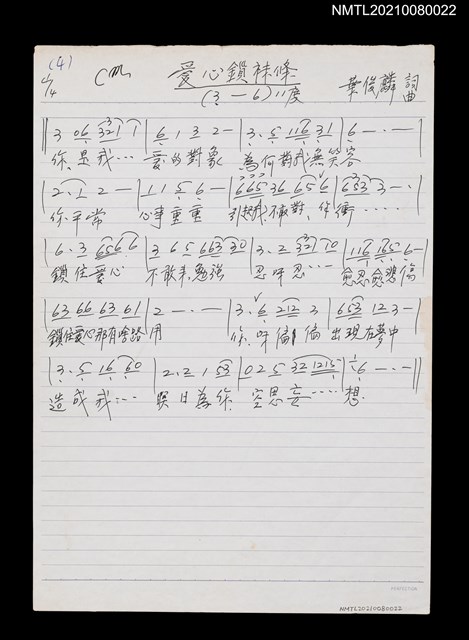 NMTL20210080022
(4)
4/4 Cm 愛心鎖袜條 葉俊麟 詞曲
(3-6) 11度
3 06 3211 | 6 1 3 2- | 3. 5 116 31 | 6-.-
你.是我… 愛的對象 為何對我無笑容
2. 1 2 - | 1 1 5 6 - | 665 36 65 6 | 6533-.
你.平常 心事重重
6. 3 6566 | 3 6 5 663 30 | 3. 2 32110 | 116 165 6-
鎖住愛心 不敢來.勉強 忍呀忍…
63 66 63 61 | 2-.- | 3. 6 212 3 | 653 12 3-
鎖住愛心那有啥路用 你.呀偏偏 出現在夢中
3. 5 16 60 | 2. 2 1 53 | 02 5 32 1215 | 6-.-
造成我… 暝日為你. 空思妄……想.
NMTL20210080022